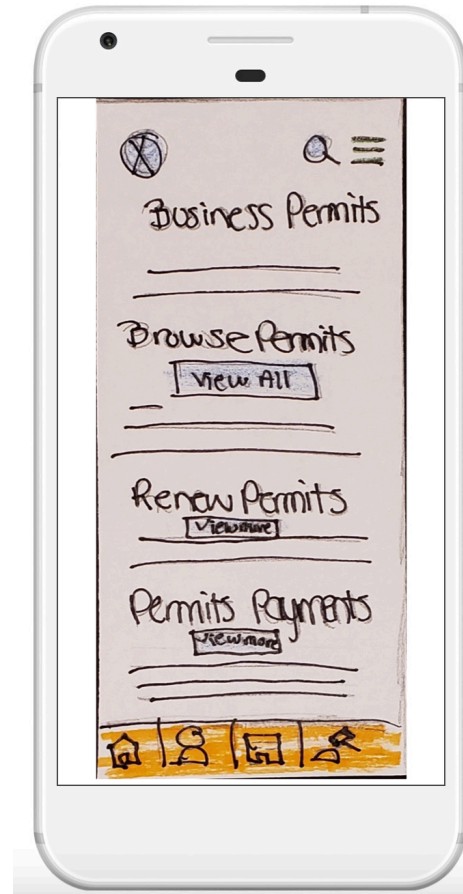 Business Permits
Browse Permits
View All
Renew Permits
View more
Permits Payments
View more